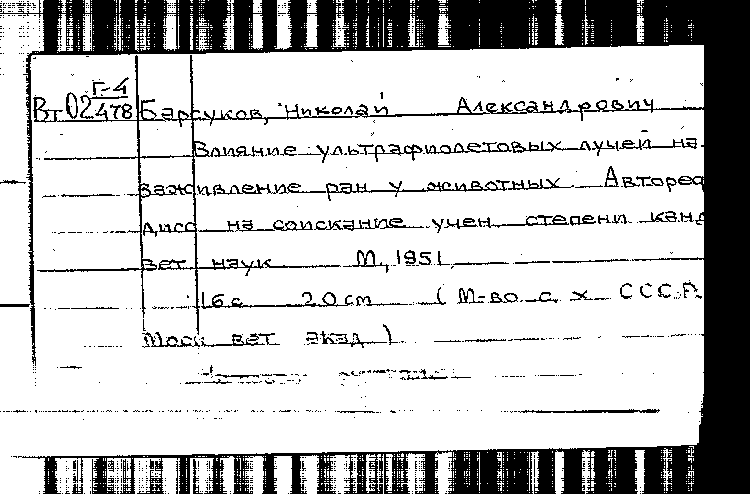 Г-4
Вт 02478 Барсуков, Николай Александрович
Влияние ультрафиолетовых лучей на
заживление ран у животных Автореф
дисс на соискание учен степени канд
вет наук М, 1951
16с 20 ст ( М-во с. х СССР.
Моск вет акад )